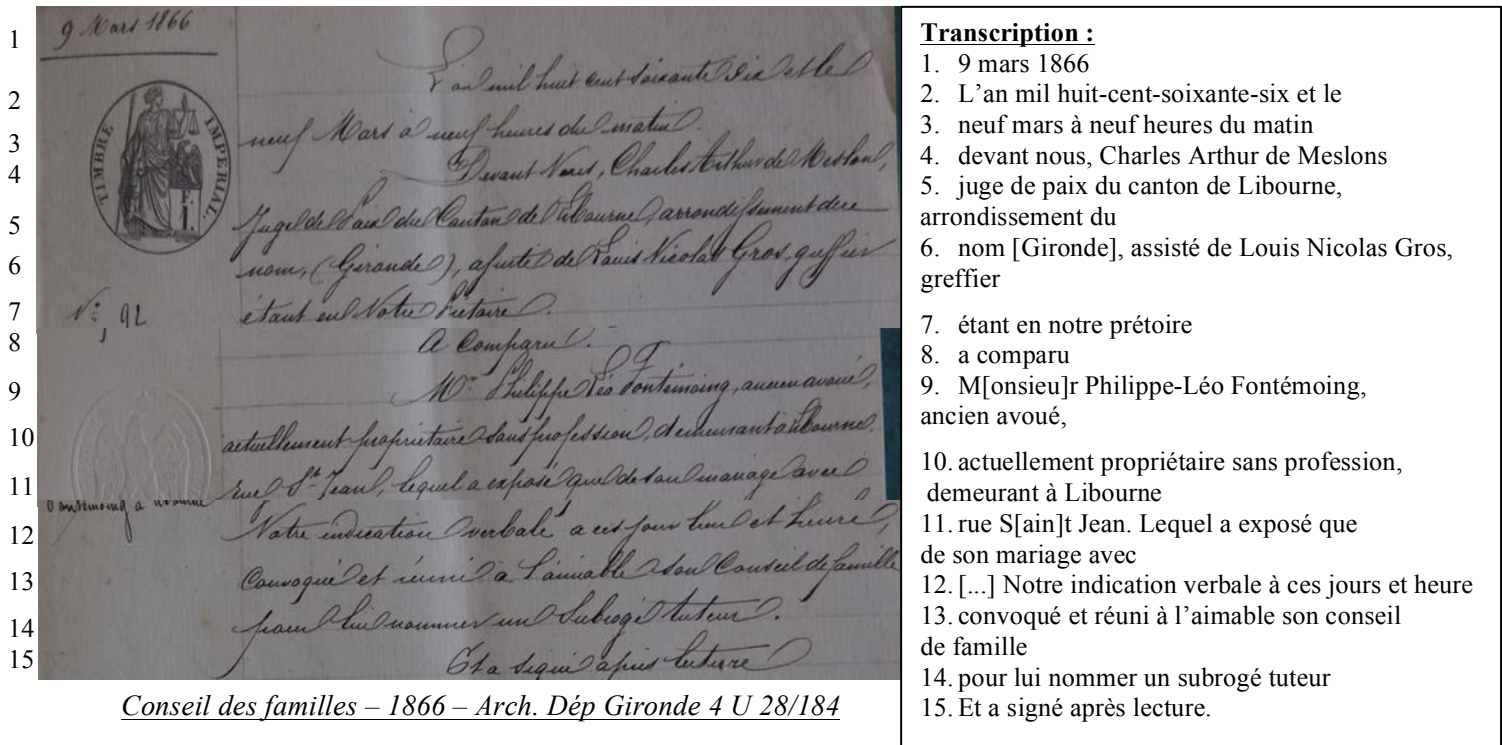 1 9 Mars 1866
L'an mil huit cent soixante Six et le
2
TIMBRE IMPERIAL.
3 neuf Mars à neuf heures du matin.
4 Devant Nous, Charles Arthur de Meslon,
5 Juge de Paix du Canton de Libourne, arrondissement de ce
6 nom, (Gironde), assisté de Louis Nicolas Gros, greffier
7 N° 92 étant en Notre Prétoire.
8 A Comparu.
9 Mr Philippe Léo Fontémoing, ancien avoué,
10 actuellement propriétaire sans profession, demeurant à Libourne.
11 rue St Jean, lequel a exposé que de son mariage avec
Fontémoing à
12 Notre indication verbale a ces jour lieu et heure,
13 Convoqué et réuni à l'amiable son Conseil de famille
14 pour lui nommer un Subrogé tuteur.
15 Et a signé après lecture
Conseil des familles – 1866 – Arch. Dép Gironde 4 U 28/184
Transcription :
1. 9 mars 1866
2. L’an mil huit-cent-soixante-six et le
3. neuf mars à neuf heures du matin
4. devant nous, Charles Arthur de Meslons
5. juge de paix du canton de Libourne,
arrondissement du
6. nom [Gironde], assisté de Louis Nicolas Gros,
greffier
7. étant en notre prétoire
8. a comparu
9. M[onsieu]r Philippe-Léo Fontémoing,
ancien avoué,
10. actuellement propriétaire sans profession,
demeurant à Libourne
11. rue S[ain]t Jean. Lequel a exposé que
de son mariage avec
12. [...] Notre indication verbale à ces jours et heure
13. convoqué et réuni à l’aimable son conseil
de famille
14. pour lui nommer un subrogé tuteur
15. Et a signé après lecture.